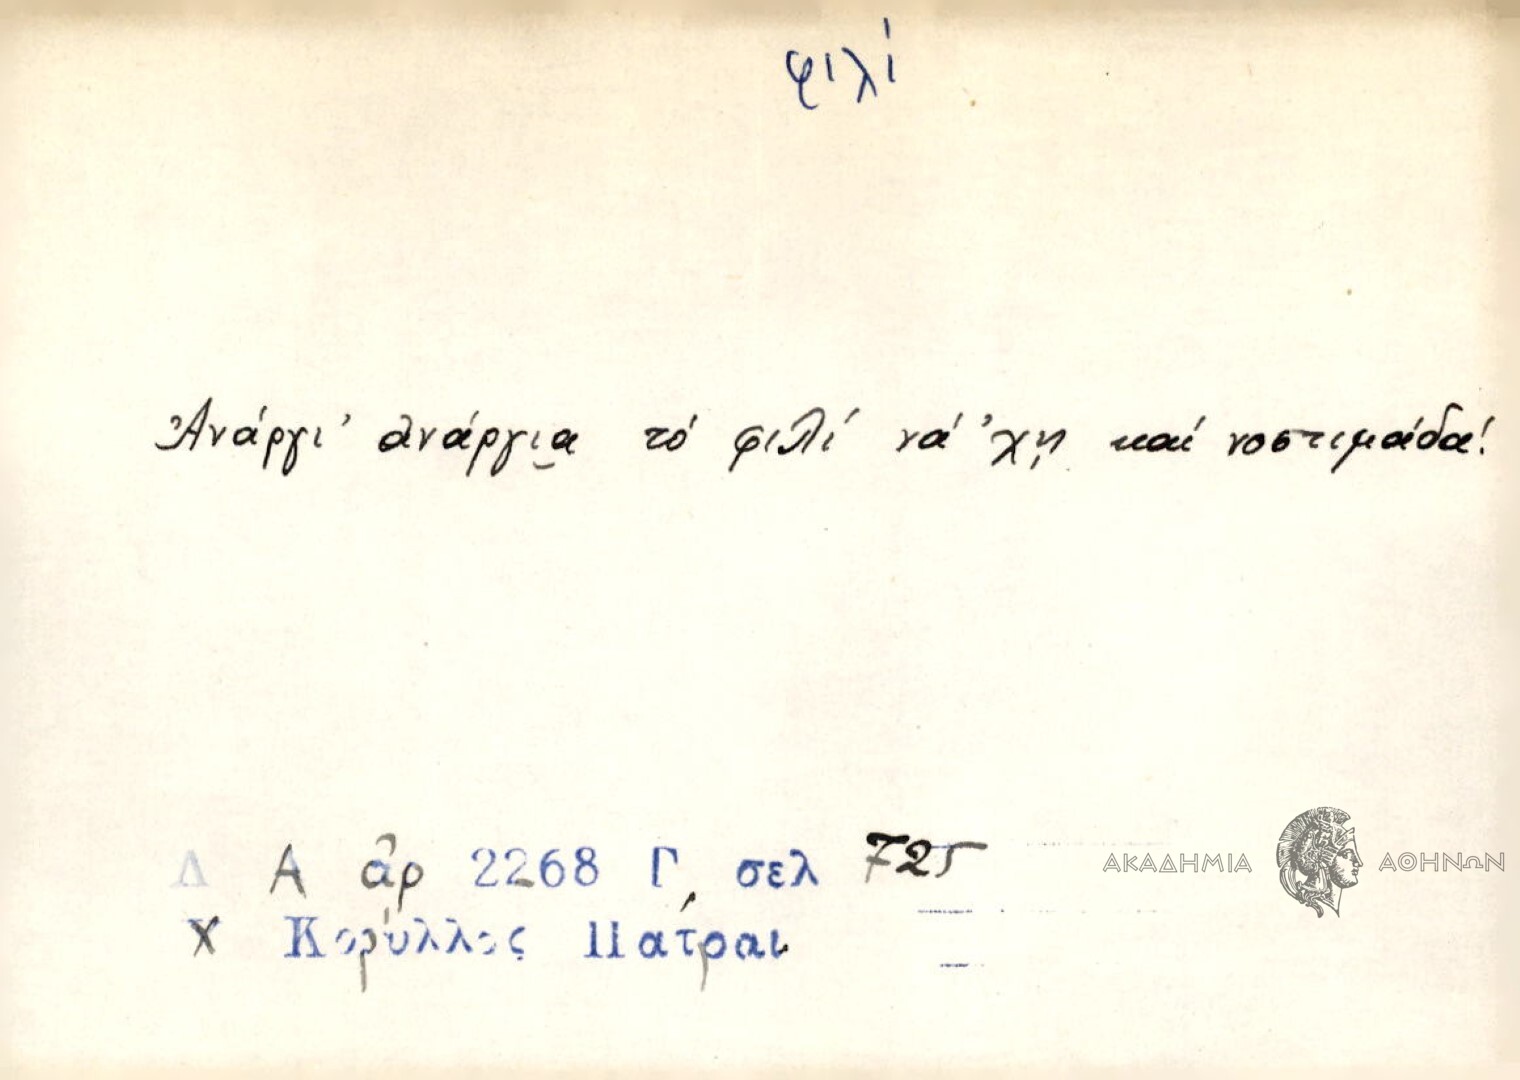 φιλί
Ἀνάργι' ἀνάργια τό φιλί νά 'χῃ καί νοστιμάδα!
Λ Α ἀρ 2268 Γ, σελ 725
Χ Κορύλλος Πάτραι
ΑΚΑΔΗΜΙΑ ΑΘΗΝΩΝ